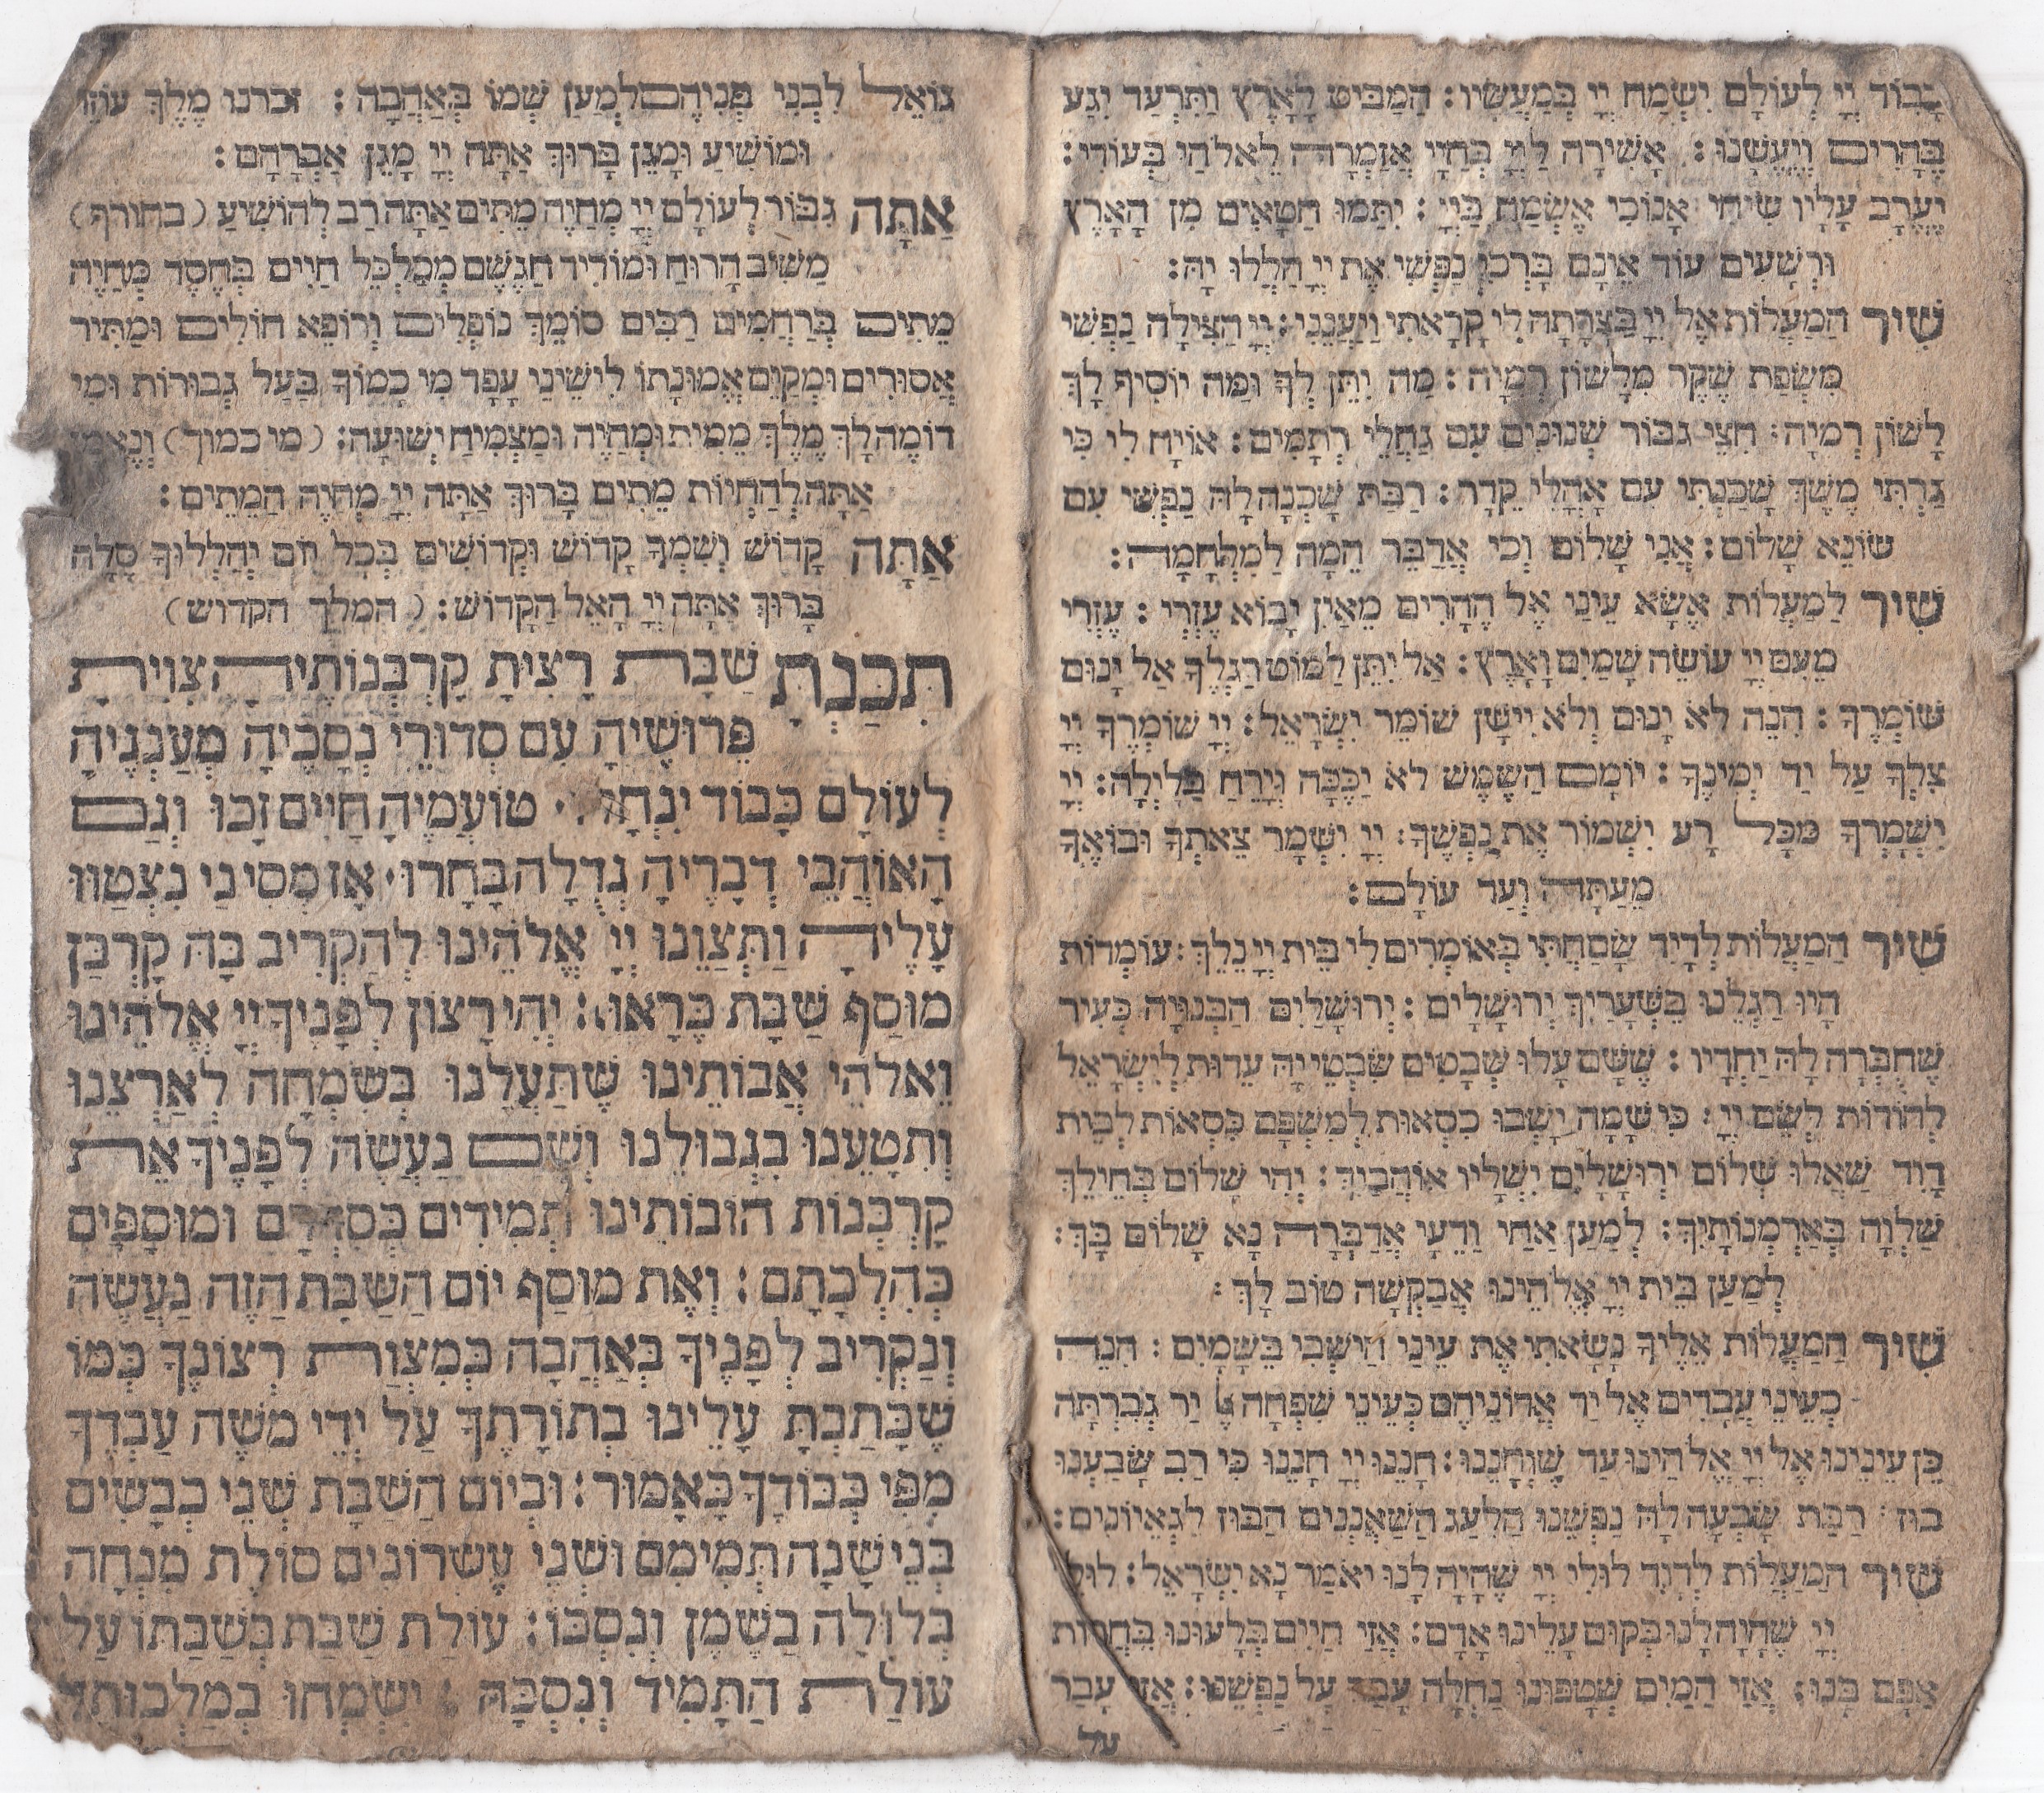 כְבוֹד יְיָ לְעוֹלָם יִשְׂמַח יְיָ בְּמַעֲשָׂיו: הַמַּבִּיט לָאָרֶץ וַתִּרְעַד יִגַּע
בֶּהָרִים וְיֶעֱשָׁנוּ: אָשִׁירָה לַיְיָ בְּחַיָּי אֲזַמְּרָה לֵאלֹהַי בְּעוֹדִי:
יֶעֱרַב עָלָיו שִׂיחִי אָנוֹכִי אֶשְׂמַח בַּיְיָ: יִתַּמּוּ חַטָּאִים מִן הָאָרֶץ
וּרְשָׁעִים עוֹד אֵינָם בָּרְכִי נַפְשִׁי אֶת יְיָ הַלְלוּ יָהּ:
שִׁיר הַמַּעֲלוֹת אֶל יְיָ בַּצָּרָתָה לִי קָרָאתִי וַיַּעֲנֵנִי: יְיָ הַצִּילָה נַפְשִׁי
מִשְּׂפַת שֶׁקֶר מִלָּשׁוֹן רְמִיָּה: מַה יִּתֵּן לְךָ וּמַה יּוֹסִיף לָךְ
לָשׁוֹן רְמִיָּה: חִצֵּי גִבּוֹר שְׁנוּנִים עִם גַּחֲלֵי רְתָמִים: אוֹיָה לִי כִּי
גַרְתִּי מֶשֶׁךְ שָׁכַנְתִּי עִם אָהֳלֵי קֵדָר: רַבַּת שָׁכְנָה לָּהּ נַפְשִׁי עִם
שׂוֹנֵא שָׁלוֹם: אֲנִי שָׁלוֹם וְכִי אֲדַבֵּר הֵמָּה לַמִּלְחָמָה:
שִׁיר לַמַּעֲלוֹת אֶשָּׂא עֵינַי אֶל הֶהָרִים מֵאַיִן יָבוֹא עֶזְרִי: עֶזְרִי
מֵעִם יְיָ עוֹשֵׂה שָׁמַיִם וָאָרֶץ: אַל יִתֵּן לַמּוֹט רַגְלֶךָ אַל יָנוּם
שׁוֹמְרֶךָ: הִנֵּה לֹא יָנוּם וְלֹא יִישָׁן שׁוֹמֵר יִשְׂרָאֵל: יְיָ שׁוֹמְרֶךָ יְיָ
צִלְּךָ עַל יַד יְמִינֶךָ: יוֹמָם הַשֶּׁמֶשׁ לֹא יַכֶּכָּה וְיָרֵחַ בַּלָּיְלָה: יְיָ
יִשְׁמָרְךָ מִכָּל רָע יִשְׁמוֹר אֶת נַפְשֶׁךָ: יְיָ יִשְׁמָר צֵאתְךָ וּבוֹאֶךָ
מֵעַתָּה וְעַד עוֹלָם:
שִׁיר הַמַּעֲלוֹת לְדָוִד שָׂמַחְתִּי בְּאוֹמְרִים לִי בֵּית יְיָ נֵלֵךְ: עוֹמְדוֹת
הָיוּ רַגְלֵנוּ בִּשְׁעָרַיִךְ יְרוּשָׁלָיִם: יְרוּשָׁלַיִם הַבְּנוּיָה כְּעִיר
שֶׁחֻבְּרָה לָּהּ יַחְדָּיו: שֶׁשָּׁם עָלוּ שְׁבָטִים שִׁבְטֵי יָהּ עֵדוּת לְיִשְׂרָאֵל
לְהוֹדוֹת לְשֵׁם יְיָ: כִּי שָׁמָּה יָשְׁבוּ כִסְאוֹת לְמִשְׁפָּט כִּסְאוֹת לְבֵית
דָּוִד שַׁאֲלוּ שְׁלוֹם יְרוּשָׁלָיִם יִשְׁלָיוּ אוֹהֲבָיִךְ: יְהִי שָׁלוֹם בְּחֵילֵךְ
שַׁלְוָה בְּאַרְמְנוֹתָיִךְ: לְמַעַן אַחַי וְרֵעָי אֲדַבְּרָה נָּא שָׁלוֹם בָּךְ:
לְמַעַן בֵּית יְיָ אֱלֹהֵינוּ אֲבַקְשָׁה טוֹב לָךְ:
שִׁיר הַמַּעֲלוֹת אֵלֶיךָ נָשָׂאתִי אֶת עֵינַי הַיּוֹשְׁבִי בַּשָּׁמָיִם: הִנֵּה
כְעֵינֵי עֲבָדִים אֶל יַד אֲדוֹנֵיהֶם כְּעֵינֵי שִׁפְחָה אֶל יַד גְּבִרְתָּהּ
כֵּן עֵינֵינוּ אֶל יְיָ אֱלֹהֵינוּ עַד שֶׁיְּחָנֵּנוּ: חָנֵּנוּ יְיָ חָנֵּנוּ כִּי רַב שָׂבַעְנוּ
בוּז: רַבַּת שָׂבְעָה לָּהּ נַפְשֵׁנוּ הַלַּעַג הַשַּׁאֲנַנִּים הַבּוּז לִגְאֵיוֹנִים:
שִׁיר הַמַּעֲלוֹת לְדָוִד לוּלֵי יְיָ שֶׁהָיָה לָנוּ יֹאמַר נָא יִשְׂרָאֵל: לוּלֵי
יְיָ שֶׁהָיָה לָנוּ בְּקוּם עָלֵינוּ אָדָם: אֲזַי חַיִּים בְּלָעוּנוּ בַּחֲרוֹת
אַפָּם בָּנוּ: אֲזַי הַמַּיִם שְׁטָפוּנוּ נַחְלָה עָבַר עַל נַפְשֵׁנוּ: אֲזַי עָבַר
על
גּוֹאֵל לִבְנֵי בְנֵיהֶם לְמַעַן שְׁמוֹ בְּאַהֲבָה: זכרנו מֶלֶךְ עוֹזֵר
וּמוֹשִׁיעַ וּמָגֵן בָּרוּךְ אַתָּה יְיָ מָגֵן אַבְרָהָם:
אַתָּה גִּבּוֹר לְעוֹלָם יְיָ מְחַיֶּה מֵתִים אַתָּה רַב לְהוֹשִׁיעַ (בחורף)
מַשִּׁיב הָרוּחַ וּמוֹרִיד הַגֶּשֶׁם מְכַלְכֵּל חַיִּים בְּחֶסֶד מְחַיֵּה
מֵתִים בְּרַחֲמִים רַבִּים סוֹמֵךְ נוֹפְלִים וְרוֹפֵא חוֹלִים וּמַתִּיר
אֲסוּרִים וּמְקַיֵּם אֱמוּנָתוֹ לִישֵׁינֵי עָפָר מִי כָמוֹךָ בַּעַל גְּבוּרוֹת וּמִי
דּוֹמֶה לָּךְ מֶלֶךְ מֵמִית וּמְחַיֶּה וּמַצְמִיחַ יְשׁוּעָה: (מי כמוך) וְנֶאֱמָן
אַתָּה לְהַחְיוֹת מֵתִים בָּרוּךְ אַתָּה יְיָ מְחַיֵּה הַמֵּתִים:
אַתָּה קָדוֹשׁ וְשִׁמְךָ קָדוֹשׁ וּקְדוֹשִׁים בְּכָל יוֹם יְהַלְלוּךָ סֶּלָה
בָּרוּךְ אַתָּה יְיָ הָאֵל הַקָּדוֹשׁ: (המלך הקדוש)
תִּכַּנְתָּ שַׁבָּת רָצִיתָ קָרְבְּנוֹתֶיהָ צִוִּיתָ
פֵּרוּשֶׁיהָ עִם סִדּוּרֵי נְסָכֶיהָ מְעַנְּגֶיהָ
לְעוֹלָם כָּבוֹד יִנְחָלוּ. טוֹעֲמֶיהָ חַיִּים זָכוּ וְגַם
הָאוֹהֲבֵי דְבָרֶיהָ גְּדֻלָּה בָּחָרוּ. אָז מִסִּינַי נִצְטַוּוּ
עָלֶיהָ וַתְּצַוֵּנוּ יְיָ אֱלֹהֵינוּ לְהַקְרִיב בָּהּ קָרְבַּן
מוּסַף שַׁבָּת כָּרָאוּי: יְהִי רָצוֹן לְפָנֶיךָ יְיָ אֱלֹהֵינוּ
וֵאלֹהֵי אֲבוֹתֵינוּ שֶׁתַּעֲלֵנוּ בְשִׂמְחָה לְאַרְצֵנוּ
וְתִטָּעֵנוּ בִּגְבוּלֵנוּ וְשָׁם נַעֲשֶׂה לְפָנֶיךָ אֶת
קָרְבְּנוֹת חוֹבוֹתֵינוּ תְּמִידִים כְּסִדְרָם וּמוּסָפִים
כְּהִלְכָתָם: וְאֶת מוּסַף יוֹם הַשַּׁבָּת הַזֶּה נַעֲשֶׂה
וְנַקְרִיב לְפָנֶיךָ בְּאַהֲבָה כְּמִצְוַת רְצוֹנֶךָ כְּמוֹ
שֶׁכָּתַבְתָּ עָלֵינוּ בְּתוֹרָתֶךָ עַל יְדֵי מֹשֶׁה עַבְדֶּךָ
מִפִּי כְּבוֹדֶךָ כָּאָמוּר: וּבְיוֹם הַשַּׁבָּת שְׁנֵי כְבָשִׂים
בְּנֵי שָׁנָה תְּמִימִם וּשְׁנֵי עֶשְׂרוֹנִים סוֹלֶת מִנְחָה
בְּלוּלָה בַשֶּׁמֶן וְנִסְכּוֹ: עוֹלַת שַׁבַּת בְּשַׁבַּתּוֹ עַל
עוֹלַת הַתָּמִיד וְנִסְכָּהּ: יִשְׂמְחוּ בְמַלְכוּתְךָ